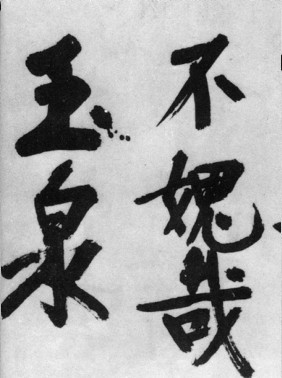 不媿哉
玉泉